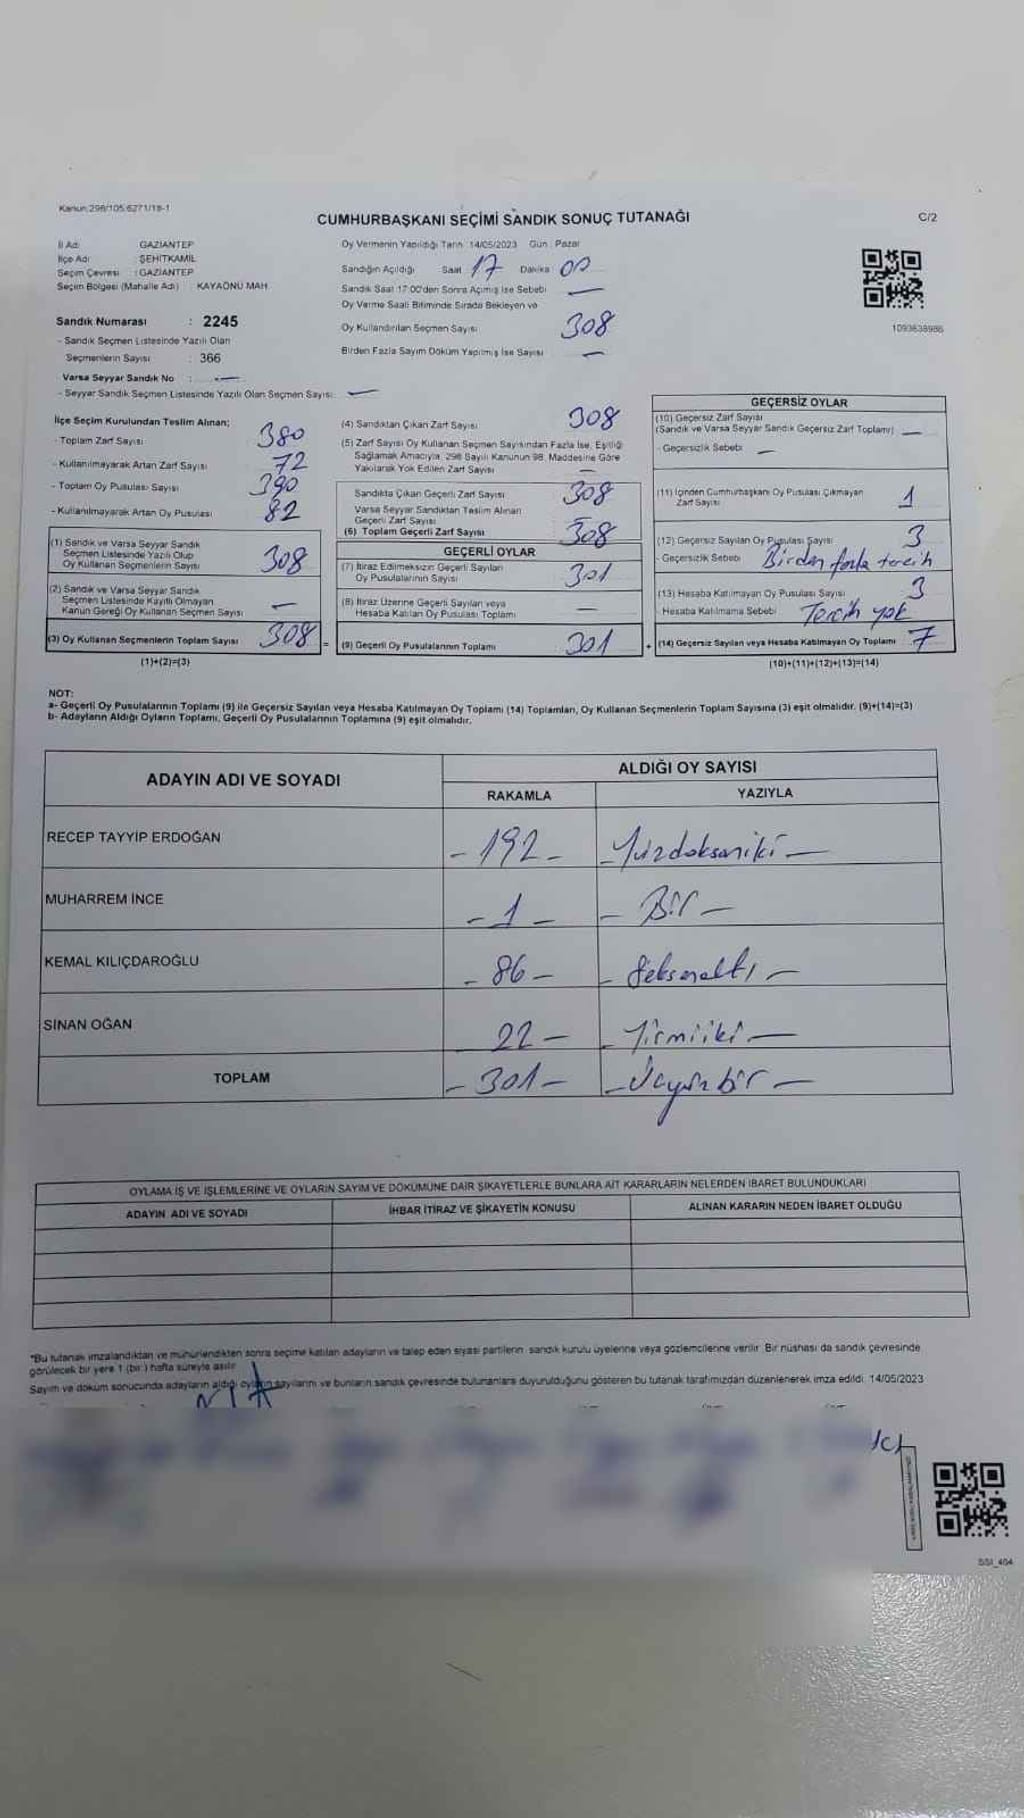 Kanun:298/105,6271/18-1
CUMHURBAŞKANI SEÇİMİ SANDIK SONUÇ TUTANAĞI
C/2
İl Adı : GAZİANTEP
İlçe Adı : ŞEHİTKAMİL
Seçim Çevresi : GAZİANTEP
Seçim Bölgesi (Mahalle Adı) KAYAÖNÜ MAH.
Sandık Numarası : 2245
- Sandık Seçmen Listesinde Yazılı Olan
Seçmenlerin Sayısı : 366
Varsa Seyyar Sandık No : —
- Seyyar Sandık Seçmen Listesinde Yazılı Olan Seçmen Sayısı: —
Oy Vermenin Yapıldığı Tarih :14/05/2023 Gün : Pazar
Sandığın Açıldığı Saat 17 Dakika 00
Sandık Saat 17:00'den Sonra Açımış İse Sebebi —
Oy Verme Saati Bitiminde Sırada Bekleyen ve
Oy Kullandırılan Seçmen Sayısı 308
Birden Fazla Sayım Döküm Yapılmış İse Sayısı —
1093638986
İlçe Seçim Kurulundan Teslim Alınan;
- Toplam Zarf Sayısı 380
- Kullanılmayarak Artan Zarf Sayısı 72
- Toplam Oy Pusulası Sayısı 390
- Kullanılmayarak Artan Oy Pusulası 82
(1) Sandık ve Varsa Seyyar Sandık
Seçmen Listesinde Yazılı Olup
Oy Kullanan Seçmenlerin Sayısı 308
(2) Sandık ve Varsa Seyyar Sandık
Seçmen Listesinde Kayıtlı Olmayan
Kanun Gereği Oy Kullanan Seçmen Sayısı —
(3) Oy Kullanan Seçmenlerin Toplam Sayısı 308 =
(1)+(2)=(3)
(4) Sandıktan Çıkan Zarf Sayısı 308
(5) Zarf Sayısı Oy Kullanan Seçmen Sayısından Fazla İse, Eşitliği
Sağlamak Amacıyla, 298 Sayılı Kanunun 98. Maddesine Göre
Yakılarak Yok Edilen Zarf Sayısı —
Sandıkta Çıkan Geçerli Zarf Sayısı 308
Varsa Seyyar Sandıktan Teslim Alınan
Geçerli Zarf Sayısı —
(6) Toplam Geçerli Zarf Sayısı 308
GEÇERLİ OYLAR
(7) İtiraz Edilmeksizin Geçerli Sayılan
Oy Pusulalarının Sayısı 301
(8) İtiraz Üzerine Geçerli Sayılan veya
Hesaba Katılan Oy Pusulası Toplamı —
(9) Geçerli Oy Pusulalarının Toplamı 301 +
GEÇERSİZ OYLAR
(10) Geçersiz Zarf Sayısı
(Sandık ve Varsa Seyyar Sandık Geçersiz Zarf Toplamı) —
- Geçersizlik Sebebi —
(11) İçinden Cumhurbaşkanı Oy Pusulası Çıkmayan
Zarf Sayısı 1
(12) Geçersiz Sayılan Oy Pusulası Sayısı 3
- Geçersizlik Sebebi Birden fazla tercih
(13) Hesaba Katılmayan Oy Pusulası Sayısı 3
- Hesaba Katılmama Sebebi Tercih yok
(14) Geçersiz Sayılan veya Hesaba Katılmayan Oy Toplamı 7
(10)+(11)+(12)+(13)=(14)
NOT:
a- Geçerli Oy Pusulalarının Toplamı (9) ile Geçersiz Sayılan veya Hesaba Katılmayan Oy Toplamı (14) Toplamları, Oy Kullanan Seçmenlerin Toplam Sayısına (3) eşit olmalıdır. (9)+(14)=(3)
b- Adayların Aldığı Oyların Toplamı, Geçerli Oy Pusulalarının Toplamına (9) eşit olmalıdır.
ADAYIN ADI VE SOYADI
ALDIĞI OY SAYISI
RAKAMLA YAZIYLA
RECEP TAYYİP ERDOĞAN - 192 - - Yüzdoksaniki -
MUHARREM İNCE - 1 - - Bir -
KEMAL KILIÇDAROĞLU - 86 - - Seksenaltı -
SİNAN OĞAN 22 - - Yirmiiki -
TOPLAM - 301 - - Üçyüzbir -
OYLAMA İŞ VE İŞLEMLERİNE VE OYLARIN SAYIM VE DÖKÜMÜNE DAİR ŞİKAYETLERLE BUNLARA AİT KARARLARIN NELERDEN İBARET BULUNDUKLARI
ADAYIN ADI VE SOYADI İHBAR İTİRAZ VE ŞİKAYETİN KONUSU ALINAN KARARIN NEDEN İBARET OLDUĞU
*Bu tutanak imzalandıktan ve mühürlendikten sonra seçime katılan adayların ve talep eden siyasi partilerin sandık kurulu üyelerine veya gözlemcilerine verilir. Bir nüshası da sandık çevresinde
görülecek bir yere 1 (bir ) hafta süreyle asılır.
Sayım ve döküm sonucunda adayların aldığı oyların sayılarını ve bunların sandık çevresinde bulunanlara duyurulduğunu gösteren bu tutanak tarafımızdan düzenlenerek imza edildi. 14/05/2023
SSI_404